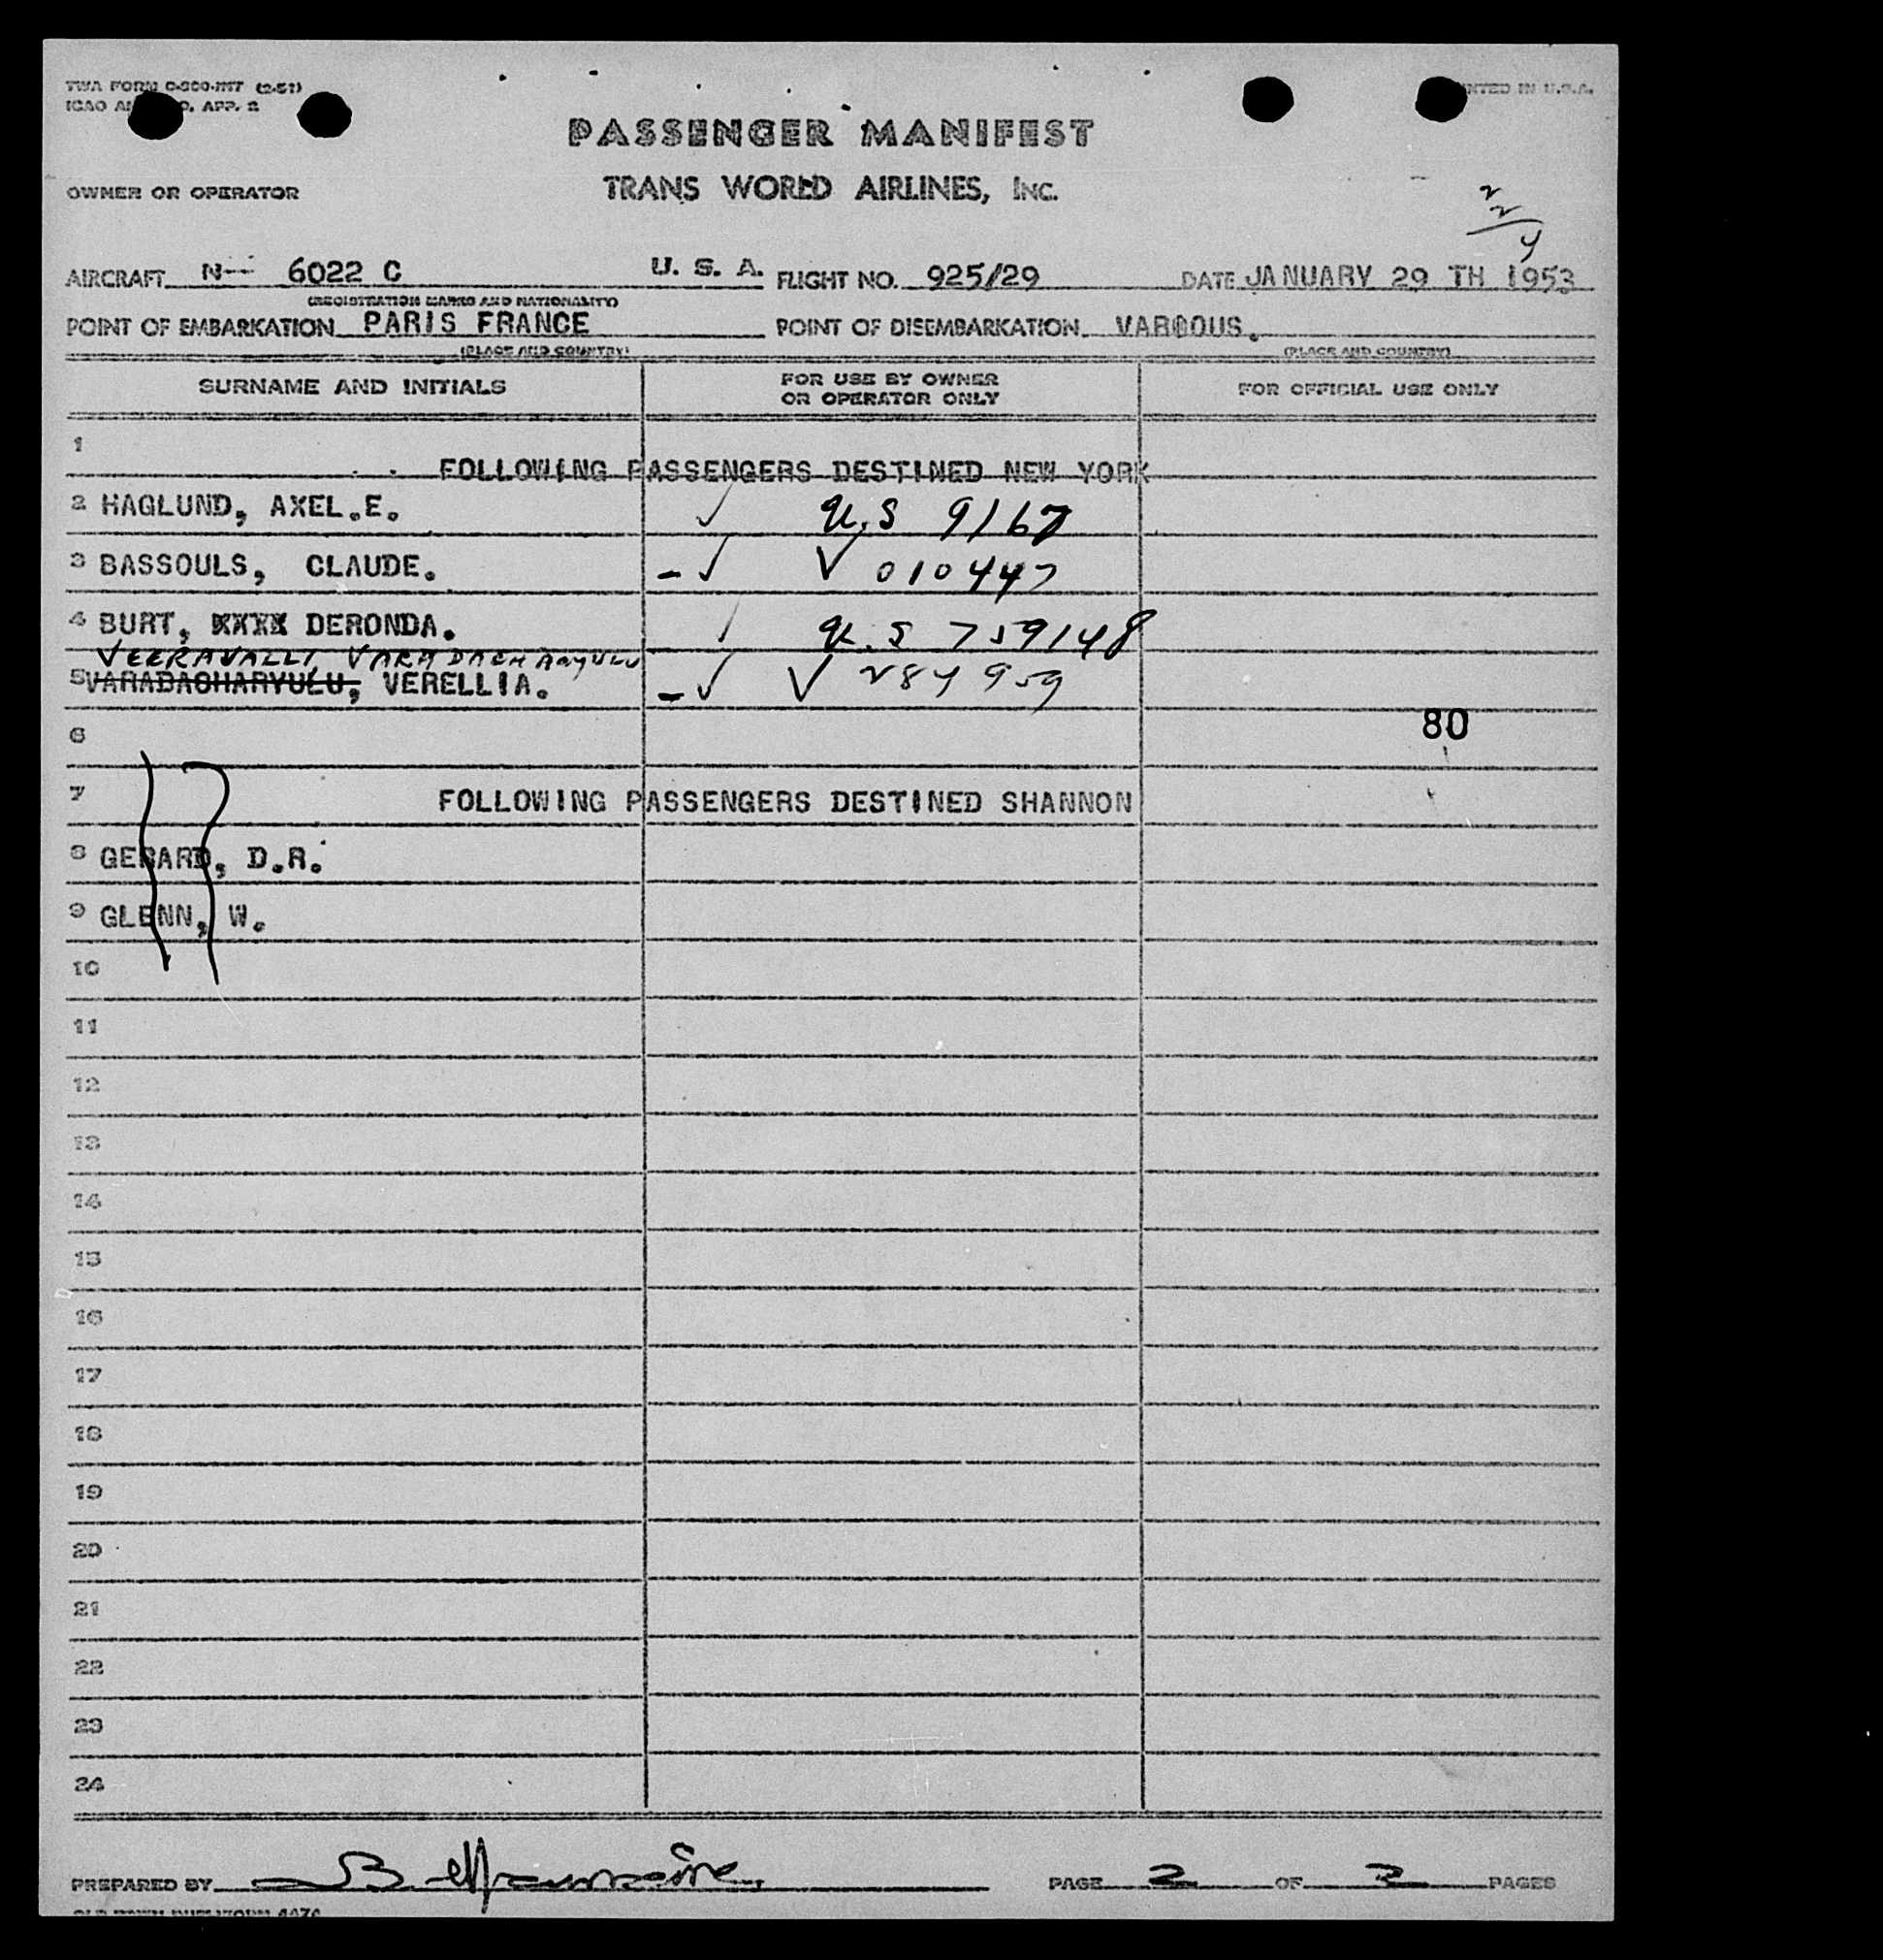 TWA FORM C-300-INT (2-51)
ICAO APP. 2
PRINTED IN U.S.A.
PASSENGER MANIFEST
OWNER OR OPERATOR TRANS WORLD AIRLINES, INC.
2
2
4
AIRCRAFT N-- 6022 C U. S. A. FLIGHT NO. 925/29 DATE JANUARY 29 TH 1953
(REGISTRATION MARKS AND NATIONALITY)
POINT OF EMBARKATION PARIS FRANCE POINT OF DISEMBARKATION VARIOUS.
(PLACE AND COUNTRY) (PLACE AND COUNTRY)
SURNAME AND INITIALS FOR USE BY OWNER OR OPERATOR ONLY FOR OFFICIAL USE ONLY
1
FOLLOWING PASSENGERS DESTINED NEW YORK
2 HAGLUND, AXEL.E. ✓ U.S 9167
3 BASSOULS, CLAUDE. -✓ V 010447
4 BURT, XXXX DERONDA. ✓ U.S 759148
VEERAVALLI, VARADACHARYULU
5 VARADACHARYULU, VERELLIA. -✓ V 284959
6 80
7 FOLLOWING PASSENGERS DESTINED SHANNON
8 GERARD, D.R.
9 GLENN, W.
10
11
12
13
14
15
16
17
18
19
20
21
22
23
24
PREPARED BY PAGE 2 OF 2 PAGES